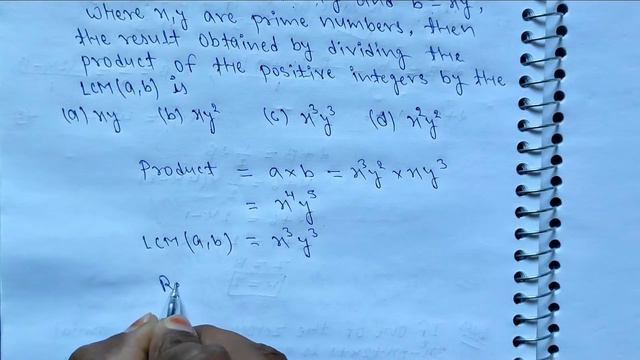 and b = xy,
where x,y are prime numbers, then
the result obtained by dividing the
product of the positive integers by the
LCM(a,b) is
(a) xy (b) xy² (c) x³y³ (d) x²y²
Product = a×b = x³y² × xy³
= x⁴y⁵
LCM(a,b) = x³y³